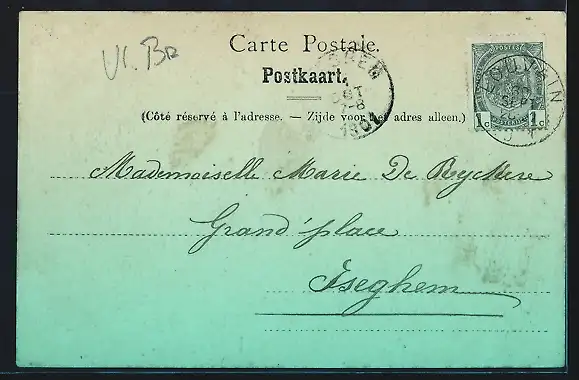 Vl. Br
Carte Postale.
Postkaart.
(Côté réservé à l'adresse. — Zijde voor het adres alleen.)
1c 1c
Mademoiselle Marie De Ryckere
Grand'place
Iseghem